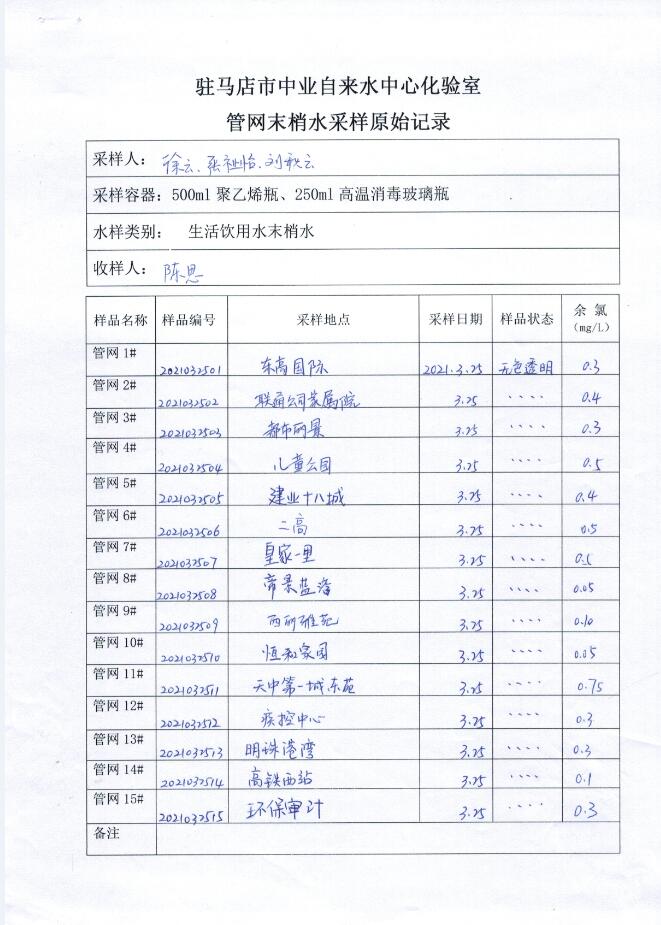 驻马店市中业自来水中心化验室
管网末梢水采样原始记录
采样人： 徐云、张祉怡、刘秋云
采样容器：500ml 聚乙烯瓶、250ml 高温消毒玻璃瓶
水样类别： 生活饮用水末梢水
收样人： 陈思
样品名称 样品编号 采样地点 采样日期 样品状态 余 氯 (mg/L)
管网 1# 2021032501 东高国际 2021.3.25 无色透明 0.3
管网 2# 2021032502 联通公司家属院 3.25 、、、、 0.4
管网 3# 2021032503 都市丽景 3.25 、、、、 0.3
管网 4# 2021032504 儿童公园 3.25 、、、、 0.5
管网 5# 2021032505 建业十八城 3.25 、、、、 0.4
管网 6# 2021032506 二高 3.25 、、、、 0.5
管网 7# 2021032507 皇家一里 3.25 、、、、 0.5
管网 8# 2021032508 帝景蓝湾 3.25 、、、、 0.05
管网 9# 2021032509 西丽雅苑 3.25 、、、、 0.10
管网 10# 2021032510 恒和家园 3.25 、、、、 0.05
管网 11# 2021032511 天中第一城东苑 3.25 、、、、 0.75
管网 12# 2021032512 疾控中心 3.25 、、、、 0.3
管网 13# 2021032513 明珠港湾 3.25 、、、、 0.3
管网 14# 2021032514 高铁西站 3.25 、、、、 0.1
管网 15# 2021032515 环保审计 3.25 、、、、 0.3
备注